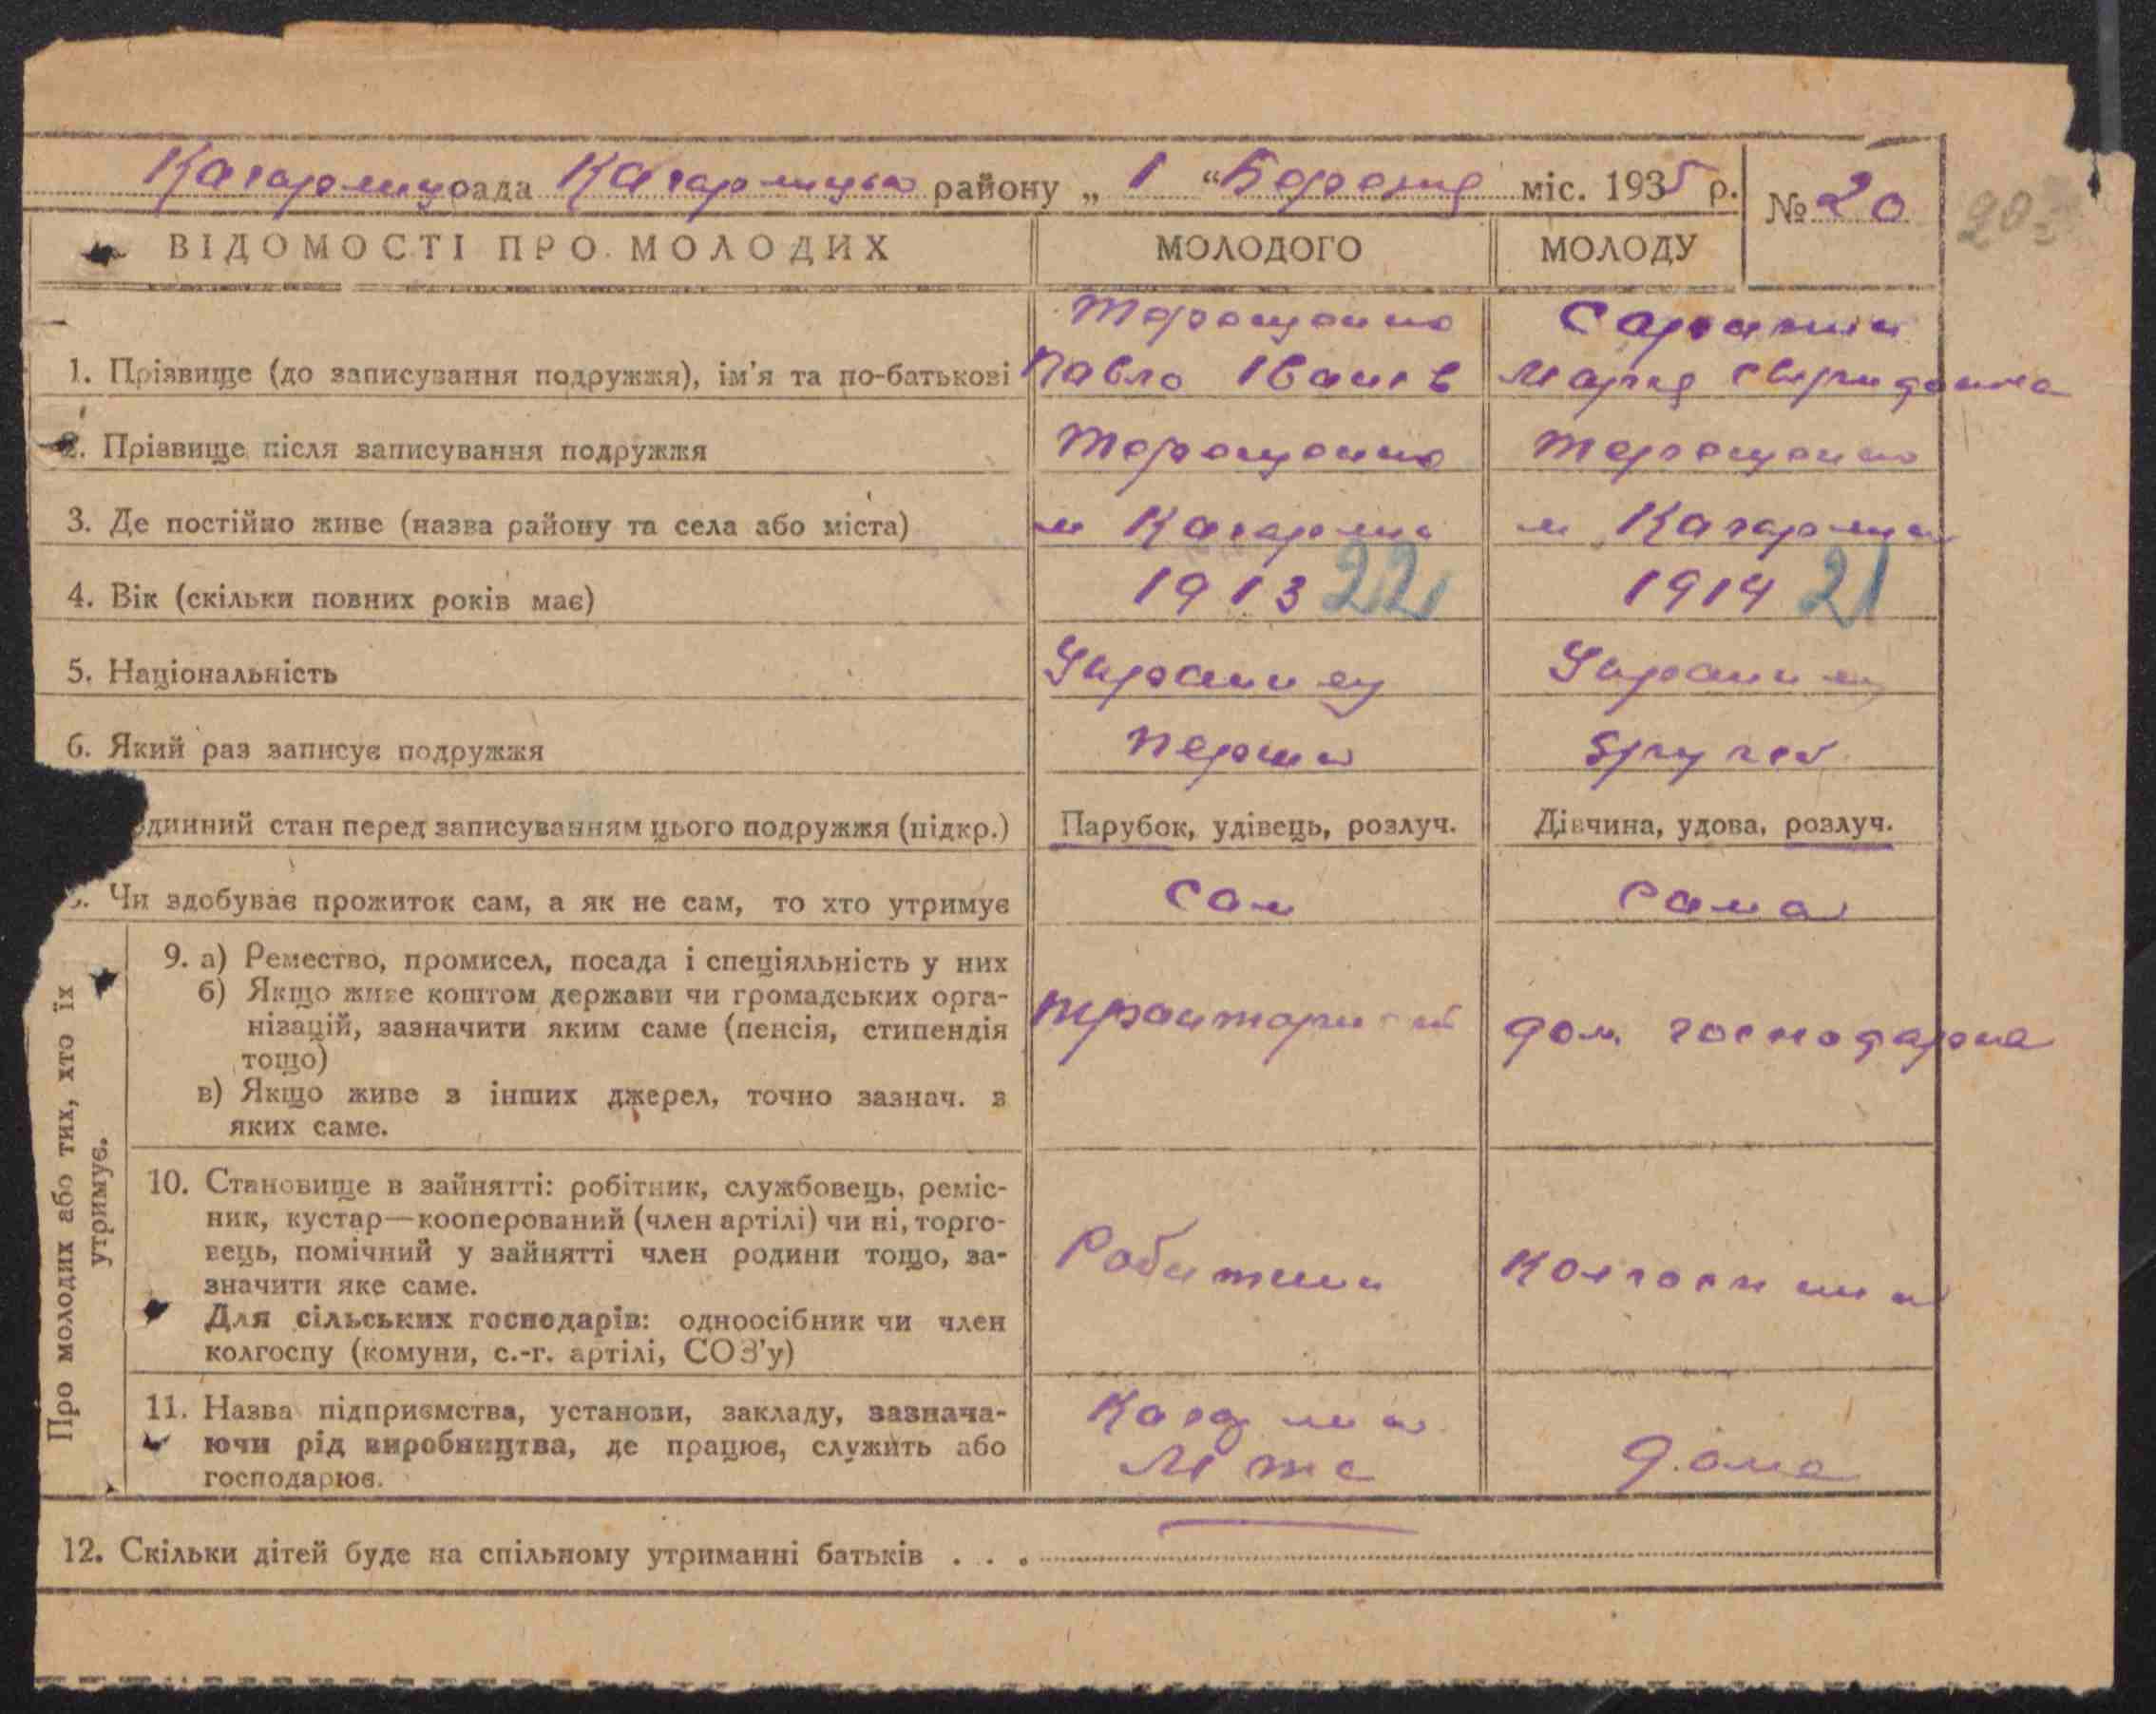 Кагарлицьрада Кагарлицька району „ 1 “ Березня міс. 1935 р. № 20
ВІДОМОСТІ ПРО МОЛОДИХ МОЛОДОГО МОЛОДУ
1. Прізвище (до записування подружжя), ім'я та по-батькові Терещенко Павло Іванів Марія Свиридонна
2. Прізвище після записування подружжя Терещенко Терещенко
3. Де постійно живе (назва району та села або міста) м Кагарлик м Кагарлик
4. Вік (скільки повних років має) 1913 22 1914 21
5. Національність Украинец Украинец
6. Який раз записує подружжя перший другий
одинний стан перед записуванням цього подружжя (підкр.) Парубок, удівець, розлуч. Дівчина, удова, розлуч.
Чи здобуває прожиток сам, а як не сам, то хто утримує Сам Сама
Про молодих або тих, хто їх
утримує.
9. а) Ремество, промисел, посада і спеціяльність у них
б) Якщо живе коштом держави чи громадських орга-
нізацій, зазначити яким саме (пенсія, стипендія
тощо)
в) Якщо живе з інших джерел, точно зазнач. з
яких саме.
тракторист дом. господарка
10. Становище в зайнятті: робітник, службовець, реміс-
ник, кустар—кооперований (член артілі) чи ні, торго-
вець, помічний у зайнятті член родини тощо, за-
значити яке саме.
Для сільських господарів: одноосібник чи член
колгоспу (комуни, с.-г. артілі, СОЗ'у)
Робитник колгоспниця
11. Назва підприємства, установи, закладу, зазнача-
ючи рід виробництва, де працює, служить або
господарює.
МТС дома
12. Скільки дітей буде на спільному утриманні батьків . . .